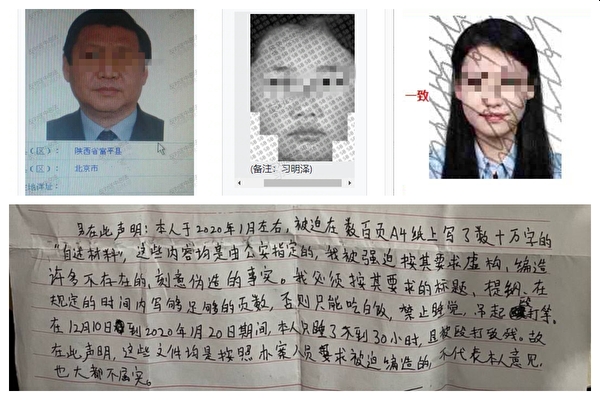 （区）： 陕西省富平县
（区）： 北京市
(备注：习明泽)
一致
另在此声明：本人于2020年1月左右，被迫在数百页A4纸上写了数十万字的
"自述材料"，这些内容均是由公安指定的，我被强迫按其要求虚构、编造
许多不存在的、刻意伪造的事实。我必须按其要求的标题、提纲、在
规定的时间内写够足够的页数，否则只能吃白饭，禁止睡觉，吊起殴打等。
在12月10日到2020年1月20日期间，本人只睡了不到30小时，且被殴打致残。故
在此声明，这些文件均是按照办案人员要求被迫编造的，不代表本人意见，
也大都不属实。